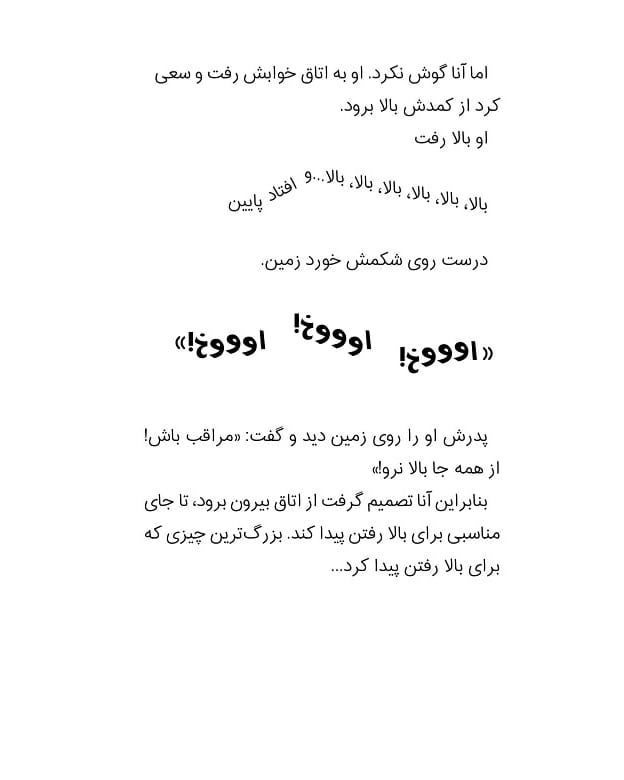 اما آنا گوش نکرد. او به اتاق خوابش رفت و سعی
کرد از کمدش بالا برود.
او بالا رفت
بالا، بالا، بالا، بالا، بالا، بالا...و افتاد پایین
درست روی شکمش خورد زمین.
«اوووخ! اوووخ! اوووخ!»
پدرش او را روی زمین دید و گفت: «مراقب باش!
از همه جا بالا نرو!»
بنابراین آنا تصمیم گرفت از اتاق بیرون برود، تا جای
مناسبی برای بالا رفتن پیدا کند. بزرگ‌ترین چیزی که
برای بالا رفتن پیدا کرد...